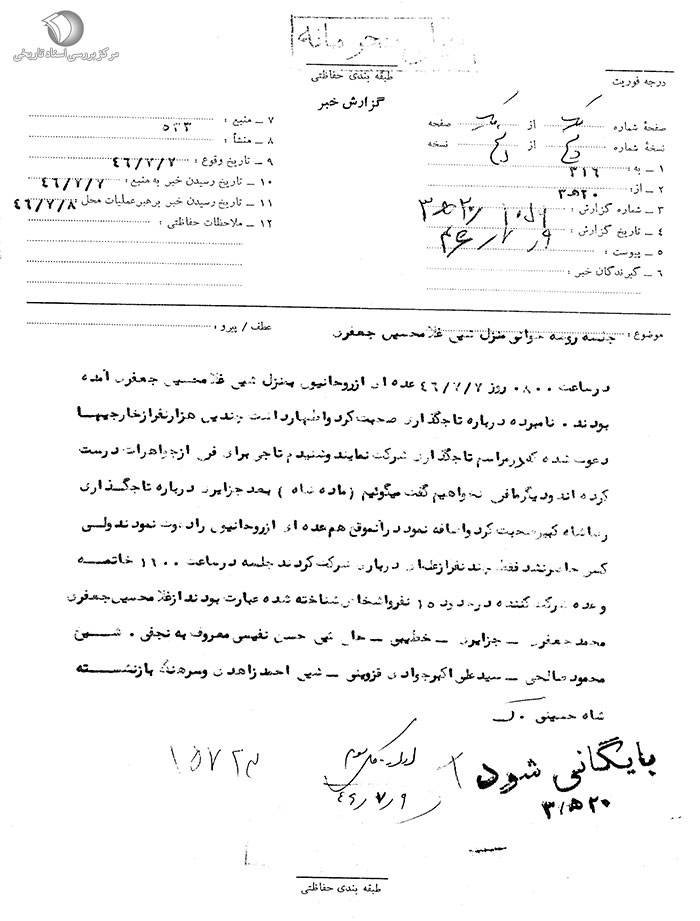 مرکز بررسی اسناد تاریخی
خیلی محرمانه
طبقه بندی حفاظتی
درجه فوریت
گزارش خبر
صفحهٔ شماره یک از یک صفحه
نسخهٔ شماره از نسخه
۱ ــ به : ۳۱۶
۲ ــ از : ۲۰ ه ۳
۳ ــ شماره گزارش :
۴ ــ تاریخ گزارش :
۵ ــ پیوست :
۶ ــ گیرندگان خبر :
۷ ــ منبع : ۵۳۳
۸ ــ منشأ :
۹ ــ تاریخ وقوع : ۴۶/۷/۷
۱۰ ــ تاریخ رسیدن خبر به منبع : ۴۶/۷/۷
۱۱ ــ تاریخ رسیدن خبر برهبر عملیات محل : ۴۶/۷/۸
۱۲ ــ ملاحظات حفاظتی :
موضوع : جلسه روضه خوانی منزل شیخ غلامحسین جعفری
عطف / پیرو :
درساعت ۰۸۰۰ روز ۴۶/۷/۷ عده ای ازروحانیون بمنزل شیخ غلامحسین جعفری آمده
بودند . نامبرده درباره تاجگذاری صحبت کرد واظهارداشت چندین هزارنفرازخارجیها
دعوت شده که درمراسم تاجگذاری شرکت نمایند وشنیدم تاجی برای فرح ازجواهرات درست
کرده اند ودیگرما فرح نخواهیم گفت میگوئیم ( ماده شاه ) بعد جزایری درباره تاجگذاری
رضا شاه کبیر صحبت کرد واضافه نمود درآنموقع هم عده ای ازروحانیون را دعوت نمودند ولی
کسی حاضرنشد فقط چند نفرازعلمای درباری شرکت کردند جلسه درساعت ۱۱۰۰ خاتمه
وعده شرکت کننده درحدود ۱۵ نفرواشخاص شناخته شده عبارت بودند ازغلامحسین جعفری
محمد جعفری ــ جزایری ــ خطیبی ــ حاج شیخ حسن نفیسی معروف به نجفی . شیخ
محمود صالحی ــ سید علی اکبرجوادی قزوینی ــ شیخ احمد زاهدی وسرهنگ بازنشسته
شاه حسینی . ک
بایگانی شود
۲۰ ه ۳
۴۶/۷/۹
۱۵۷۲۳
طبقه بندی حفاظتی